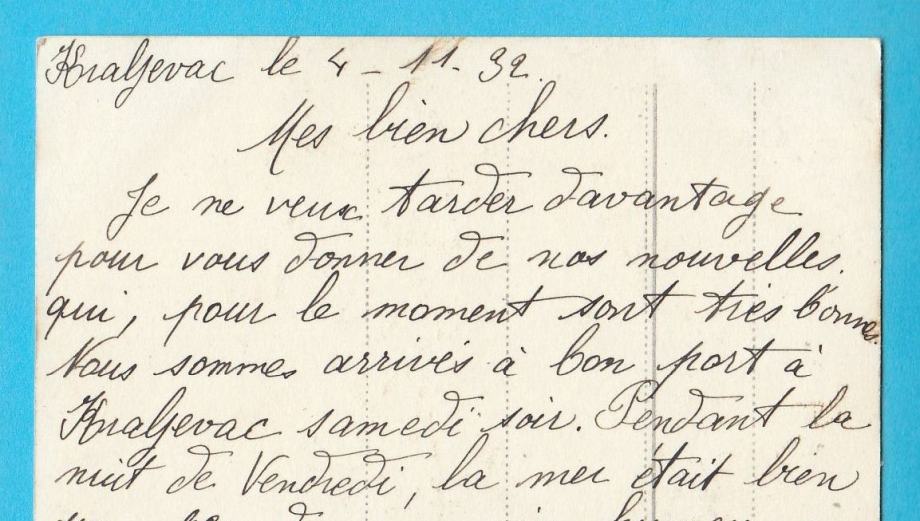 Kraljevac le 4-11-32.
Mes bien chers.
Je ne veux tarder davantage
pour vous donner de nos nouvelles.
qui, pour le moment sont très bonnes.
Nous sommes arrivés à bon port à
Kraljevac samedi soir. Pendant la
nuit de Vendredi, la mer était bien